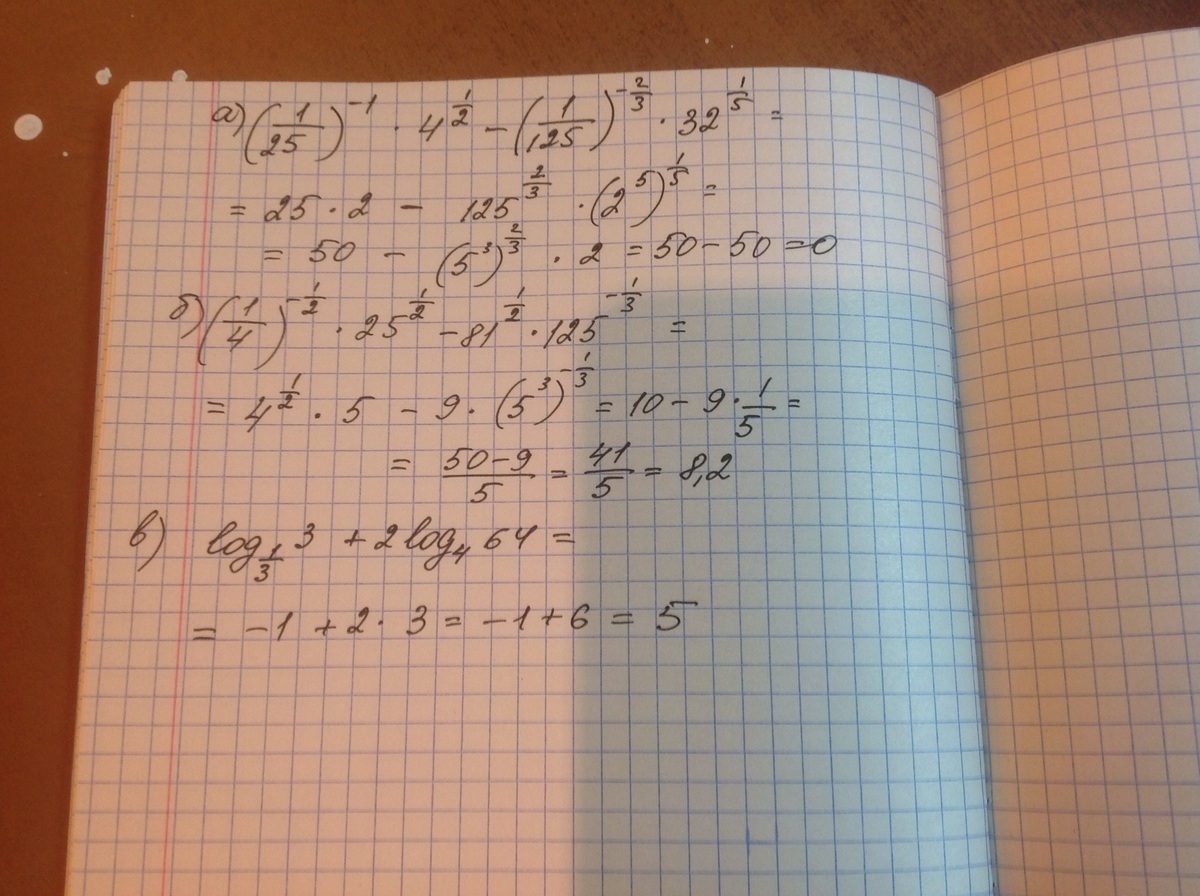 а) (1/25)^(-1) · 4^(1/2) - (1/125)^(-2/3) · 32^(1/5) =
= 25 · 2 - 125^(2/3) · (2^5)^(1/5) =
= 50 - (5^3)^(2/3) · 2 = 50 - 50 = 0
б) (1/4)^(-1/2) · 25^(1/2) - 81^(1/2) · 125^(-1/3) =
= 4^(1/2) · 5 - 9 · (5^3)^(-1/3) = 10 - 9 · 1/5 =
= (50-9)/5 = 41/5 = 8,2
в) log_(1/3) 3 + 2 log_4 64 =
= -1 + 2 · 3 = -1 + 6 = 5